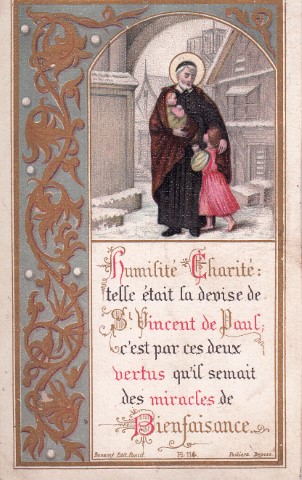 Humilité Charité:
telle était la devise de
St Vincent de Paul;
c'est par ces deux
vertus qu'il semait
des miracles de
Bienfaisance.
Pl. 116.